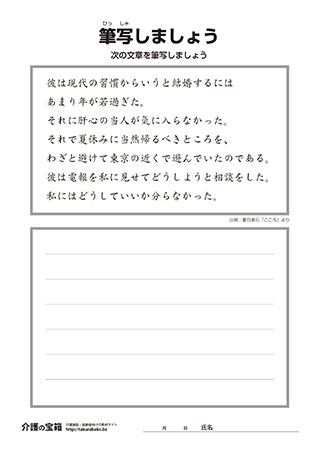 ひっ しゃ
筆写しましょう
次の文章を筆写しましょう
彼は現代の習慣からいうと結婚するには
あまり年が若過ぎた。
それに肝心の当人が気に入らなかった。
それで夏休みに当然帰るべきところを、
わざと避けて東京の近くで遊んでいたのである。
彼は電報を私に見せてどうしようと相談をした。
私にはどうしていいか分らなかった。
出典：夏目漱石「こころ」より
介護の宝箱
介護施設・高齢者向けの素材サイト
http://takarabako.biz
月 日 氏名